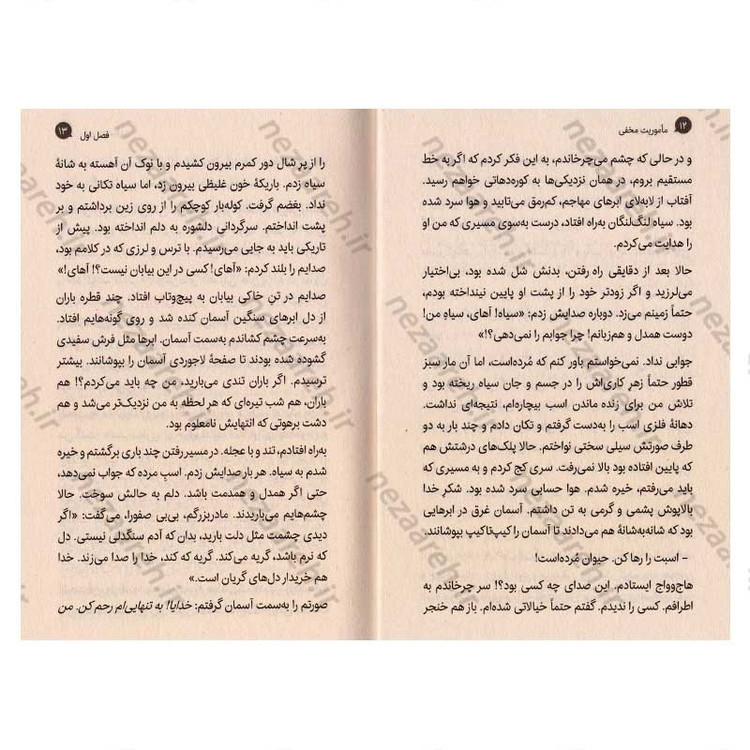 ۱۲ مأموریت مخفی
و در حالی که چشم می‌چرخاندم، به این فکر کردم که اگر به خط
مستقیم بروم، در همان نزدیکی‌ها به کوره‌دهاتی خواهم رسید.
آفتاب از لابه‌لای ابرهای مهاجم، کم‌رمق می‌تابید و هوا سرد شده
بود. سیاه لنگ‌لنگان به‌راه افتاد، درست به‌سوی مسیری که من او
را هدایت می‌کردم.
حالا بعد از دقایقی راه رفتن، بدنش شل شده بود، بی‌اختیار
می‌لرزید و اگر زودتر خود را از پشت او پایین نینداخته بودم،
حتماً زمینم می‌زد. دوباره صدایش زدم: «سیاه! آهای، سیاهِ من!
دوست همدل و هم‌زبانم! چرا جوابم را نمی‌دهی؟!»
جوابی نداد. نمی‌خواستم باور کنم که مُرده‌است، اما آن مار سبز
قطور حتماً زهر کاری‌اش را در جسم و جان سیاه ریخته بود و
تلاش من برای زنده ماندن اسب بیچاره‌ام، نتیجه‌ای نداشت.
دهانهٔ فلزی اسب را به‌دست گرفتم و تکان دادم و چند بار به دو
طرف صورتش سیلی سختی نواختم. حالا پلک‌های درشتش هم
که پایین افتاده بود بالا نمی‌رفت. سری کج کردم و به مسیری که
باید می‌رفتم، خیره شدم. هوا حسابی سرد شده بود. شکرِ خدا
بالاپوش پشمی و گرمی به تن داشتم. آسمان غرق در ابرهایی
بود که شانه‌به‌شانهٔ هم می‌دادند تا آسمان را کیپ‌تاکیپ بپوشانند.
- اسبت را رها کن. حیوان مُرده‌است!
هاج‌وواج ایستادم. این صدای چه کسی بود؟! سر چرخاندم به
اطرافم. کسی را ندیدم. گفتم حتماً خیالاتی شده‌ام. باز هم خنجر
فصل اول ۱۳
را از پر شال دور کمرم بیرون کشیدم و با نوک آن آهسته به شانهٔ
سیاه زدم. باریکهٔ خون غلیظی بیرون زد، اما سیاه تکانی به خود
نداد. بغضم گرفت. کوله‌بار کوچکم را از روی زین برداشتم و بر
پشت انداختم. سرگردانی دلشوره به دلم انداخته بود. پیش از
تاریکی باید به جایی می‌رسیدم. با ترس و لرزی که در کلامم بود،
صدایم را بلند کردم: «آهای! کسی در این بیابان نیست؟! آهای!»
صدایم در تنِ خاکی بیابان به پیچ‌وتاب افتاد. چند قطره باران
از دل ابرهای سنگین آسمان کنده شد و روی گونه‌هایم افتاد.
به‌سرعت چشم کشاندم به‌سمت آسمان. ابرها مثل فرش سفیدی
گشوده شده بودند تا صفحهٔ لاجوردی آسمان را بپوشانند. بیشتر
ترسیدم. اگر باران تندی می‌بارید، من چه باید می‌کردم؟! هم
باران، هم شب تیره‌ای که هر لحظه به من نزدیک‌تر می‌شد و هم
دشت برهوتی که انتهایش نامعلوم بود.
به‌راه افتادم، تند و با عجله. در مسیر رفتن چند باری برگشتم و خیره
شدم به سیاه. هر بار صدایش زدم. اسبِ مرده که جواب نمی‌دهد،
حتی اگر همدل و همدمت باشد. دلم به حالش سوخت. حالا
چشم‌هایم می‌باریدند. مادربزرگم، بی‌بی صفورا، می‌گفت: «اگر
دیدی چشمت مثل دلت بارید، بدان که آدم سنگدلی نیستی. دل
که نرم باشد، گریه می‌کند. گریه که کند، خدا را صدا می‌زند. خدا
هم خریدار دل‌های گریان است.»
صورتم را به‌سمت آسمان گرفتم: خدایا! به تنهایی‌ام رحم کن. من
nezaareh.ir